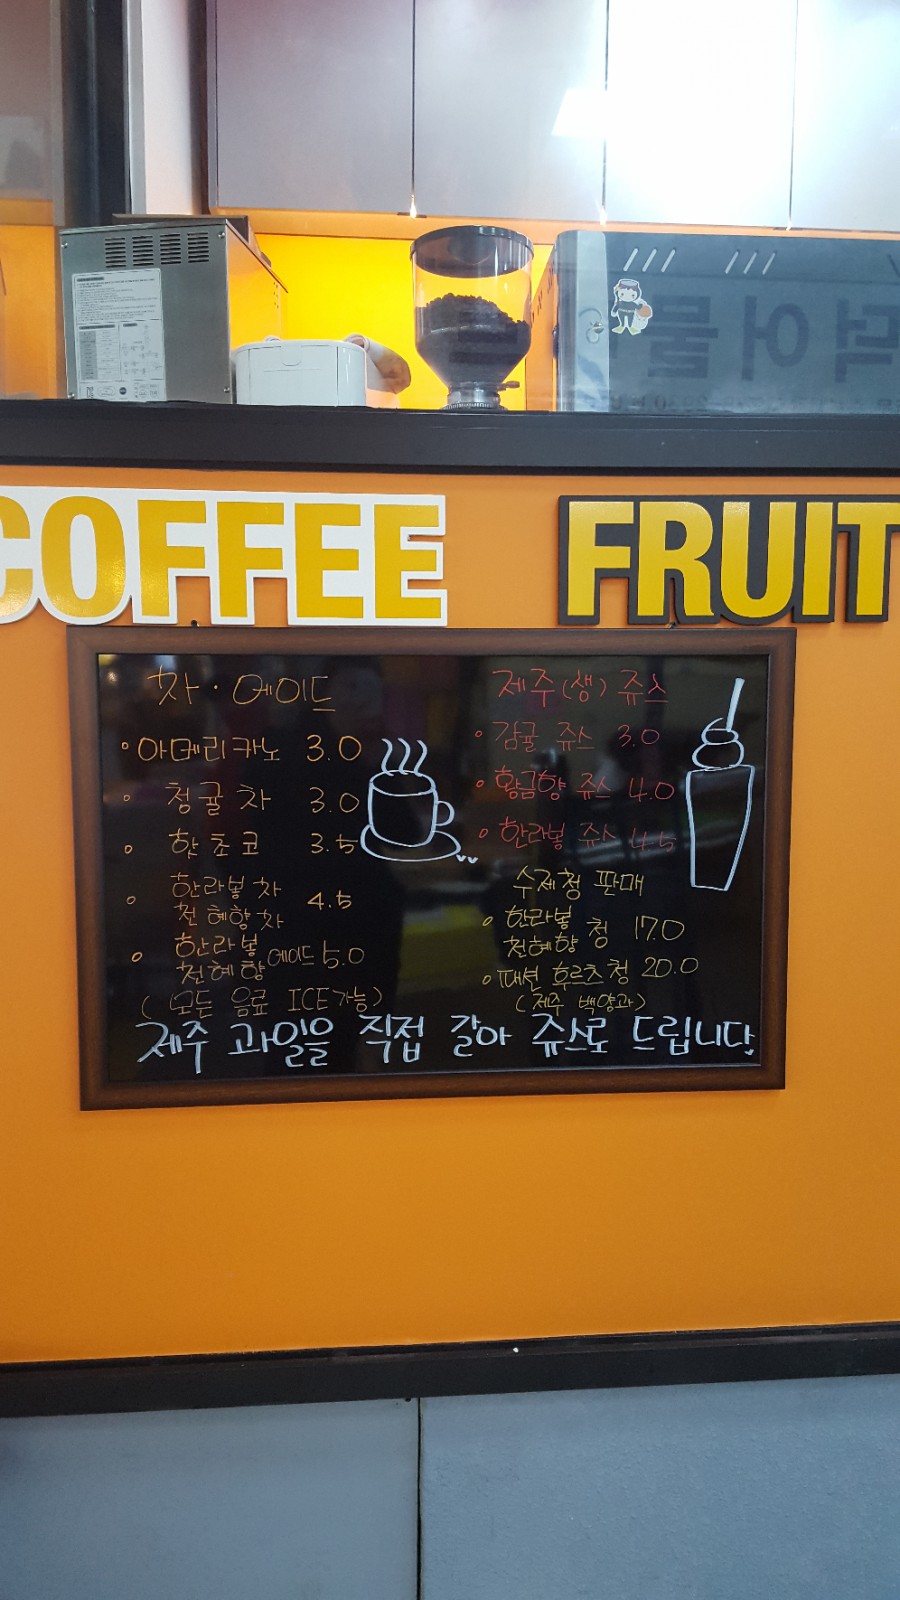 COFFEE
FRUIT
차 · 에이드
아메리카노 3.0
청귤 차 3.0
핫초코 3.5
한라봉차
천혜향차
4.5
한라봉
천혜향
에이드 5.0
(모든 음료 ICE가능)
제주(생) 쥬스
감귤 쥬스 3.0
황금향 쥬스 4.0
한라봉 쥬스 4.5
수제청 판매
한라봉
천혜향
청 17.0
패션 후르츠청 20.0
(제주 백향과)
제주 과일을 직접 갈아 쥬스로 드립니다.